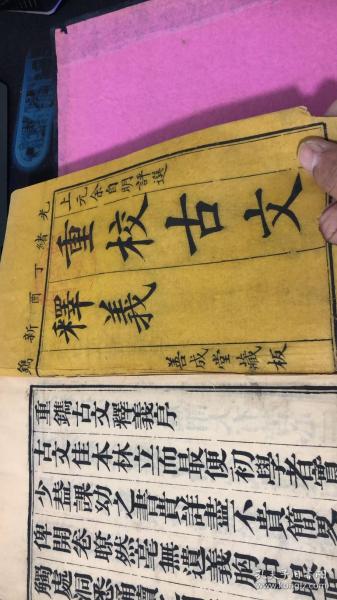 光緒丁酉新鐫
上元余自明評選
重校古文
釋義
善成堂藏板
重鐫古文釋義序
古文佳本林立而最便初學者實
少蓋課幼之書貴詳盡不貴簡
俾開卷瞭然毫無遺義胸
觸處洞悉